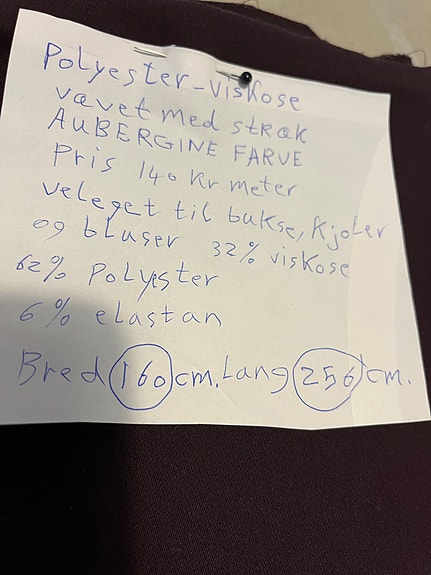 Polyester-Viskose
vævet med stræk
AUBERGINE FARVE
Pris 140 kr meter
veleget til bukse, kjoler
og bluser 32% viskose
62% Polyester
6% elastan
Bred 160 cm. Lang 256 cm.